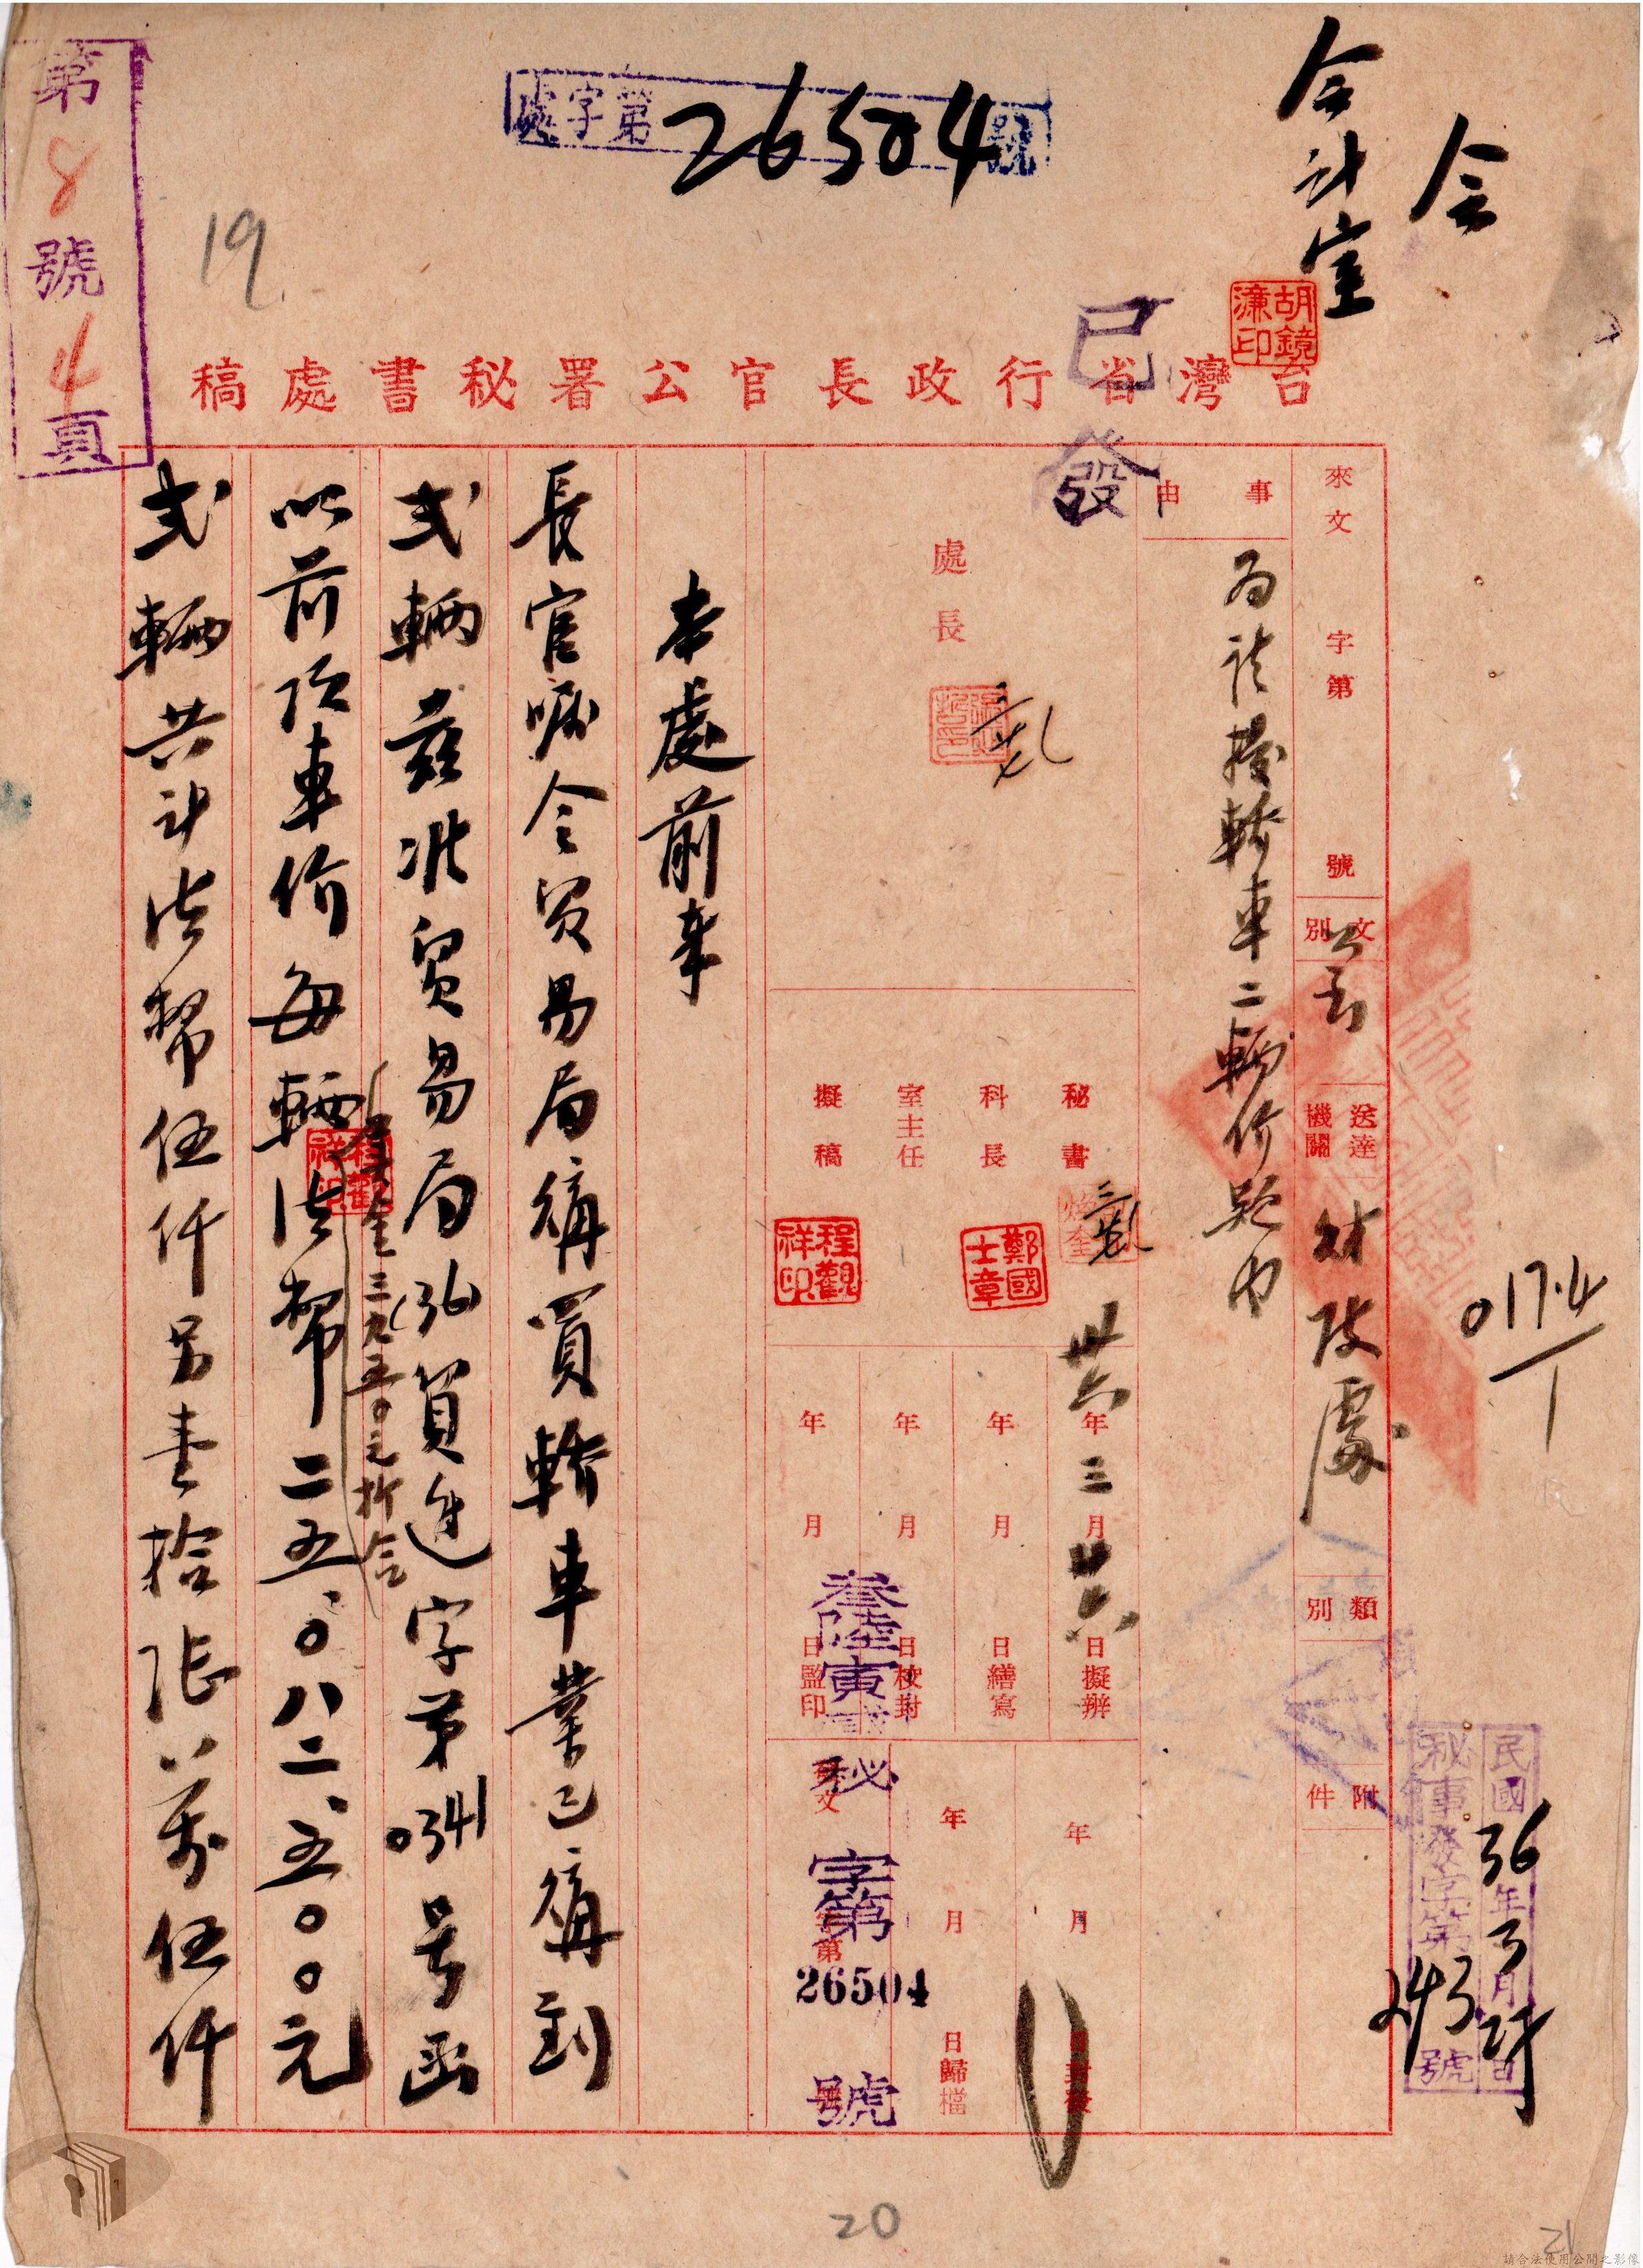 會
會計室
處字第26504號
第8號4頁
19
胡鏡濂印
已發
台灣省行政長官公署秘書處稿
來文 字第 號
文別 公函
送達機關 財政處
類別
附件
事由
為請撥轎車二輛價款由
處長
秘書
科長 鄭國士章
室主任
擬稿 程觀祥印
卅六年三月廿六日擬辦
年月日繕寫
年月日校封
年月日監印
年月日封發
年月日歸檔
叁陸寅
秘字第26504號
民國36年3月27日
秘事發字第2493號
0174/1
本處前奉
長官囑令貿易局購買轎車業已購到
弍輛茲准貿易局(36)貿進字第0341号函
以前項車价每輛美金三九五〇元折合法幣二五、〇八二、五〇〇元
程觀祥印
弍輛共計法幣伍仟另壹拾陸萬伍仟
20
21
請合法使用公開之影像